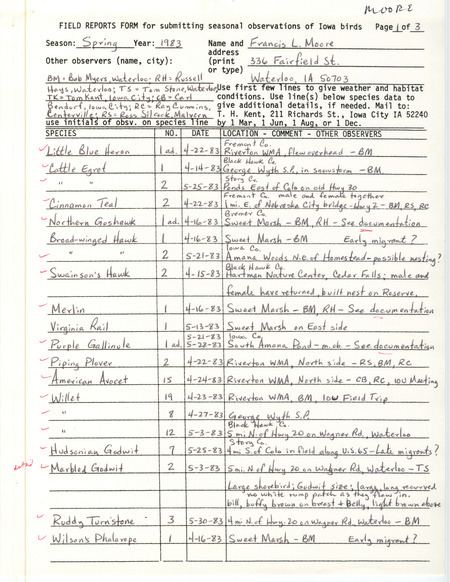 MOORE
FIELD REPORTS FORM for submitting seasonal observations of Iowa birds Page 1 of 3
Season: Spring Year: 1983 Name and address (print or type) Francis L. Moore
336 Fairfield St.
Waterloo, IA 50703
Other observers (name, city):
BM = Bob Myers, Waterloo; RH = Russell
Hays, Waterloo; TS = Tom Stone, Waterloo
TK = Tom Kent, Iowa City; CB = Carl
Bendorf, Iowa City; RC = Ray Cummins,
Centerville; RS = Ross Silcock, Malvern
use initials of obsv. on species line
Use first few lines to give weather and habitat
conditions. Use line(s) below species data to
give additional details, if needed. Mail to:
T. H. Kent, 211 Richards St., Iowa City IA 52240
by 1 Mar, 1 Jun, 1 Aug, or 1 Dec.
SPECIES NO. DATE LOCATION - COMMENT - OTHER OBSERVERS
Fremont Co.
Little Blue Heron 1 ad. 4-22-83 Riverton WMA, flew overhead - BM
Black Hawk Co.
Cattle Egret 1 4-14-83 George Wyth S.P., in snowstorm - BM
Story Co.
" " 5-25-83 Ponds East of Colo on old Hwy 30
Fremont Co. male and female together
Cinnamon Teal 2 4-22-83 1 mi. E. of Nebraska City bridge - Hwy 2 - BM, RS, RC
Bremer Co.
Northern Goshawk 1 ad. 4-16-83 Sweet Marsh - BM, RH - See documentation
Broad-winged Hawk 1 4-16-83 Sweet Marsh - BM Early migrant?
Iowa Co.
" " 2 5-21-83 Amana Woods N.E. of Homestead - possible nesting?
Black Hawk Co.
Swainson's Hawk 2 4-15-83 Hartman Nature Center, Cedar Falls; male and
female have returned, built nest on Reserve.
Merlin 1 4-16-83 Sweet Marsh - BM, RH - See documentation
Virginia Rail 1 5-13-83 Sweet Marsh on East side
5-21-83 Iowa Co.
Purple Gallinule 1 ad. 5-28-83 South Amana Pond - m.ob - See documentation
Piping Plover 2 4-22-83 Riverton WMA, North side - RS, BM, RC
American Avocet 15 4-24-83 Riverton WMA, North side - CB, RC, IOU Meeting
Willet 19 4-23-83 Riverton WMA, BM, IOU Field Trip
" 8 4-27-83 George Wyth S.P.
Black Hawk Co.
" 12 5-3-83 5 mi. N. of Hwy 20 on Wagner Rd., Waterloo
Story Co.
Hudsonian Godwit 7 5-25-83 4 mi. S. of Colo in field along U.S. 65 - Late migrants?
Marbled Godwit 2 5-3-83 5 mi. N. of Hwy 20 on Wagner Rd, Waterloo - TS
Large shorebird; Godwit size; large, long recurved
no white rump patch as they flew in.
bill, buffy brown on breast & Belly, light brown above
Ruddy Turnstone 3 5-30-83 4 mi. N. of Hwy. 20 on Wagner Rd, Waterloo - BM
Wilson's Phalarope 1 4-16-83 Sweet Marsh - BM Early migrant?